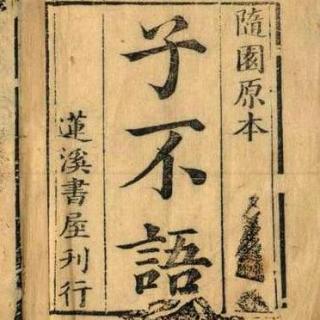 隨園原本
子不語
蓮溪書屋刊行